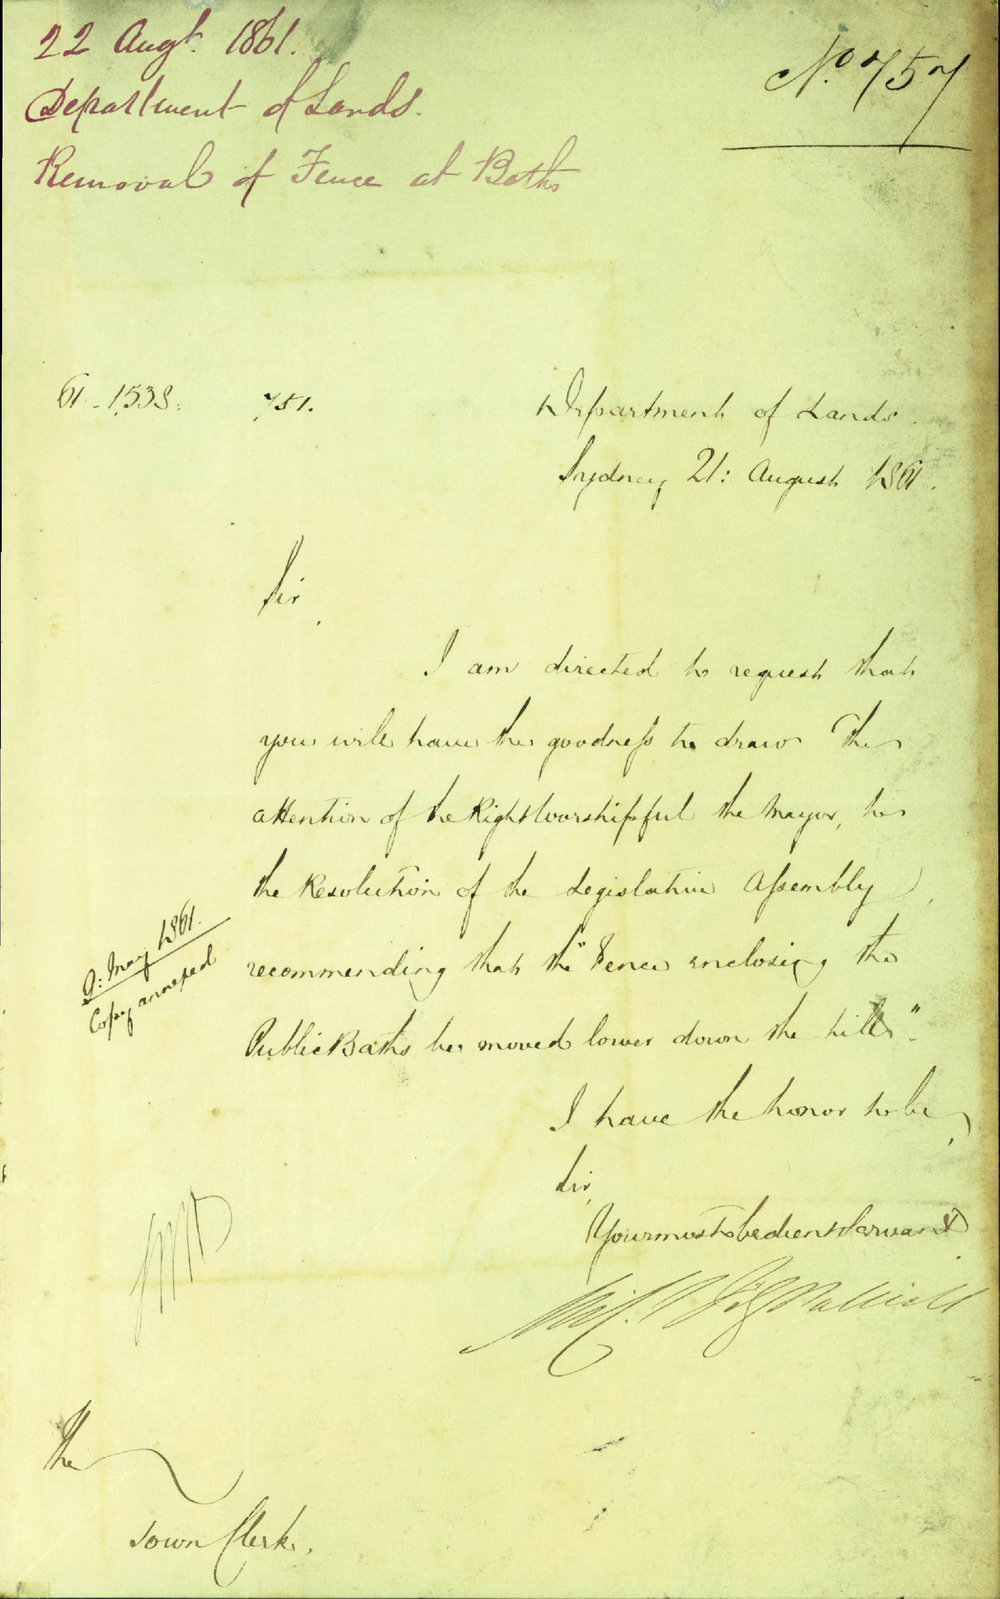 22 Augt. 1861.
No. 757
Department of Lands.
Removal of Fence at Baths
61-1538. 751.
Department of Lands.
Sydney 21: August 1861.
Sir,
I am directed to request that
you will have the goodness to draw the
attention of the Right Worshipful the Mayor, to
the Resolution of the Legislative Assembly,
2: May 1861.
Copy annexed
recommending that the "Fence enclosing the
Public Baths be moved lower down the hill".
I have the honor to be,
Sir,
Your most obedient Servant
Mich. Fitzpatrick
The
Town Clerk.